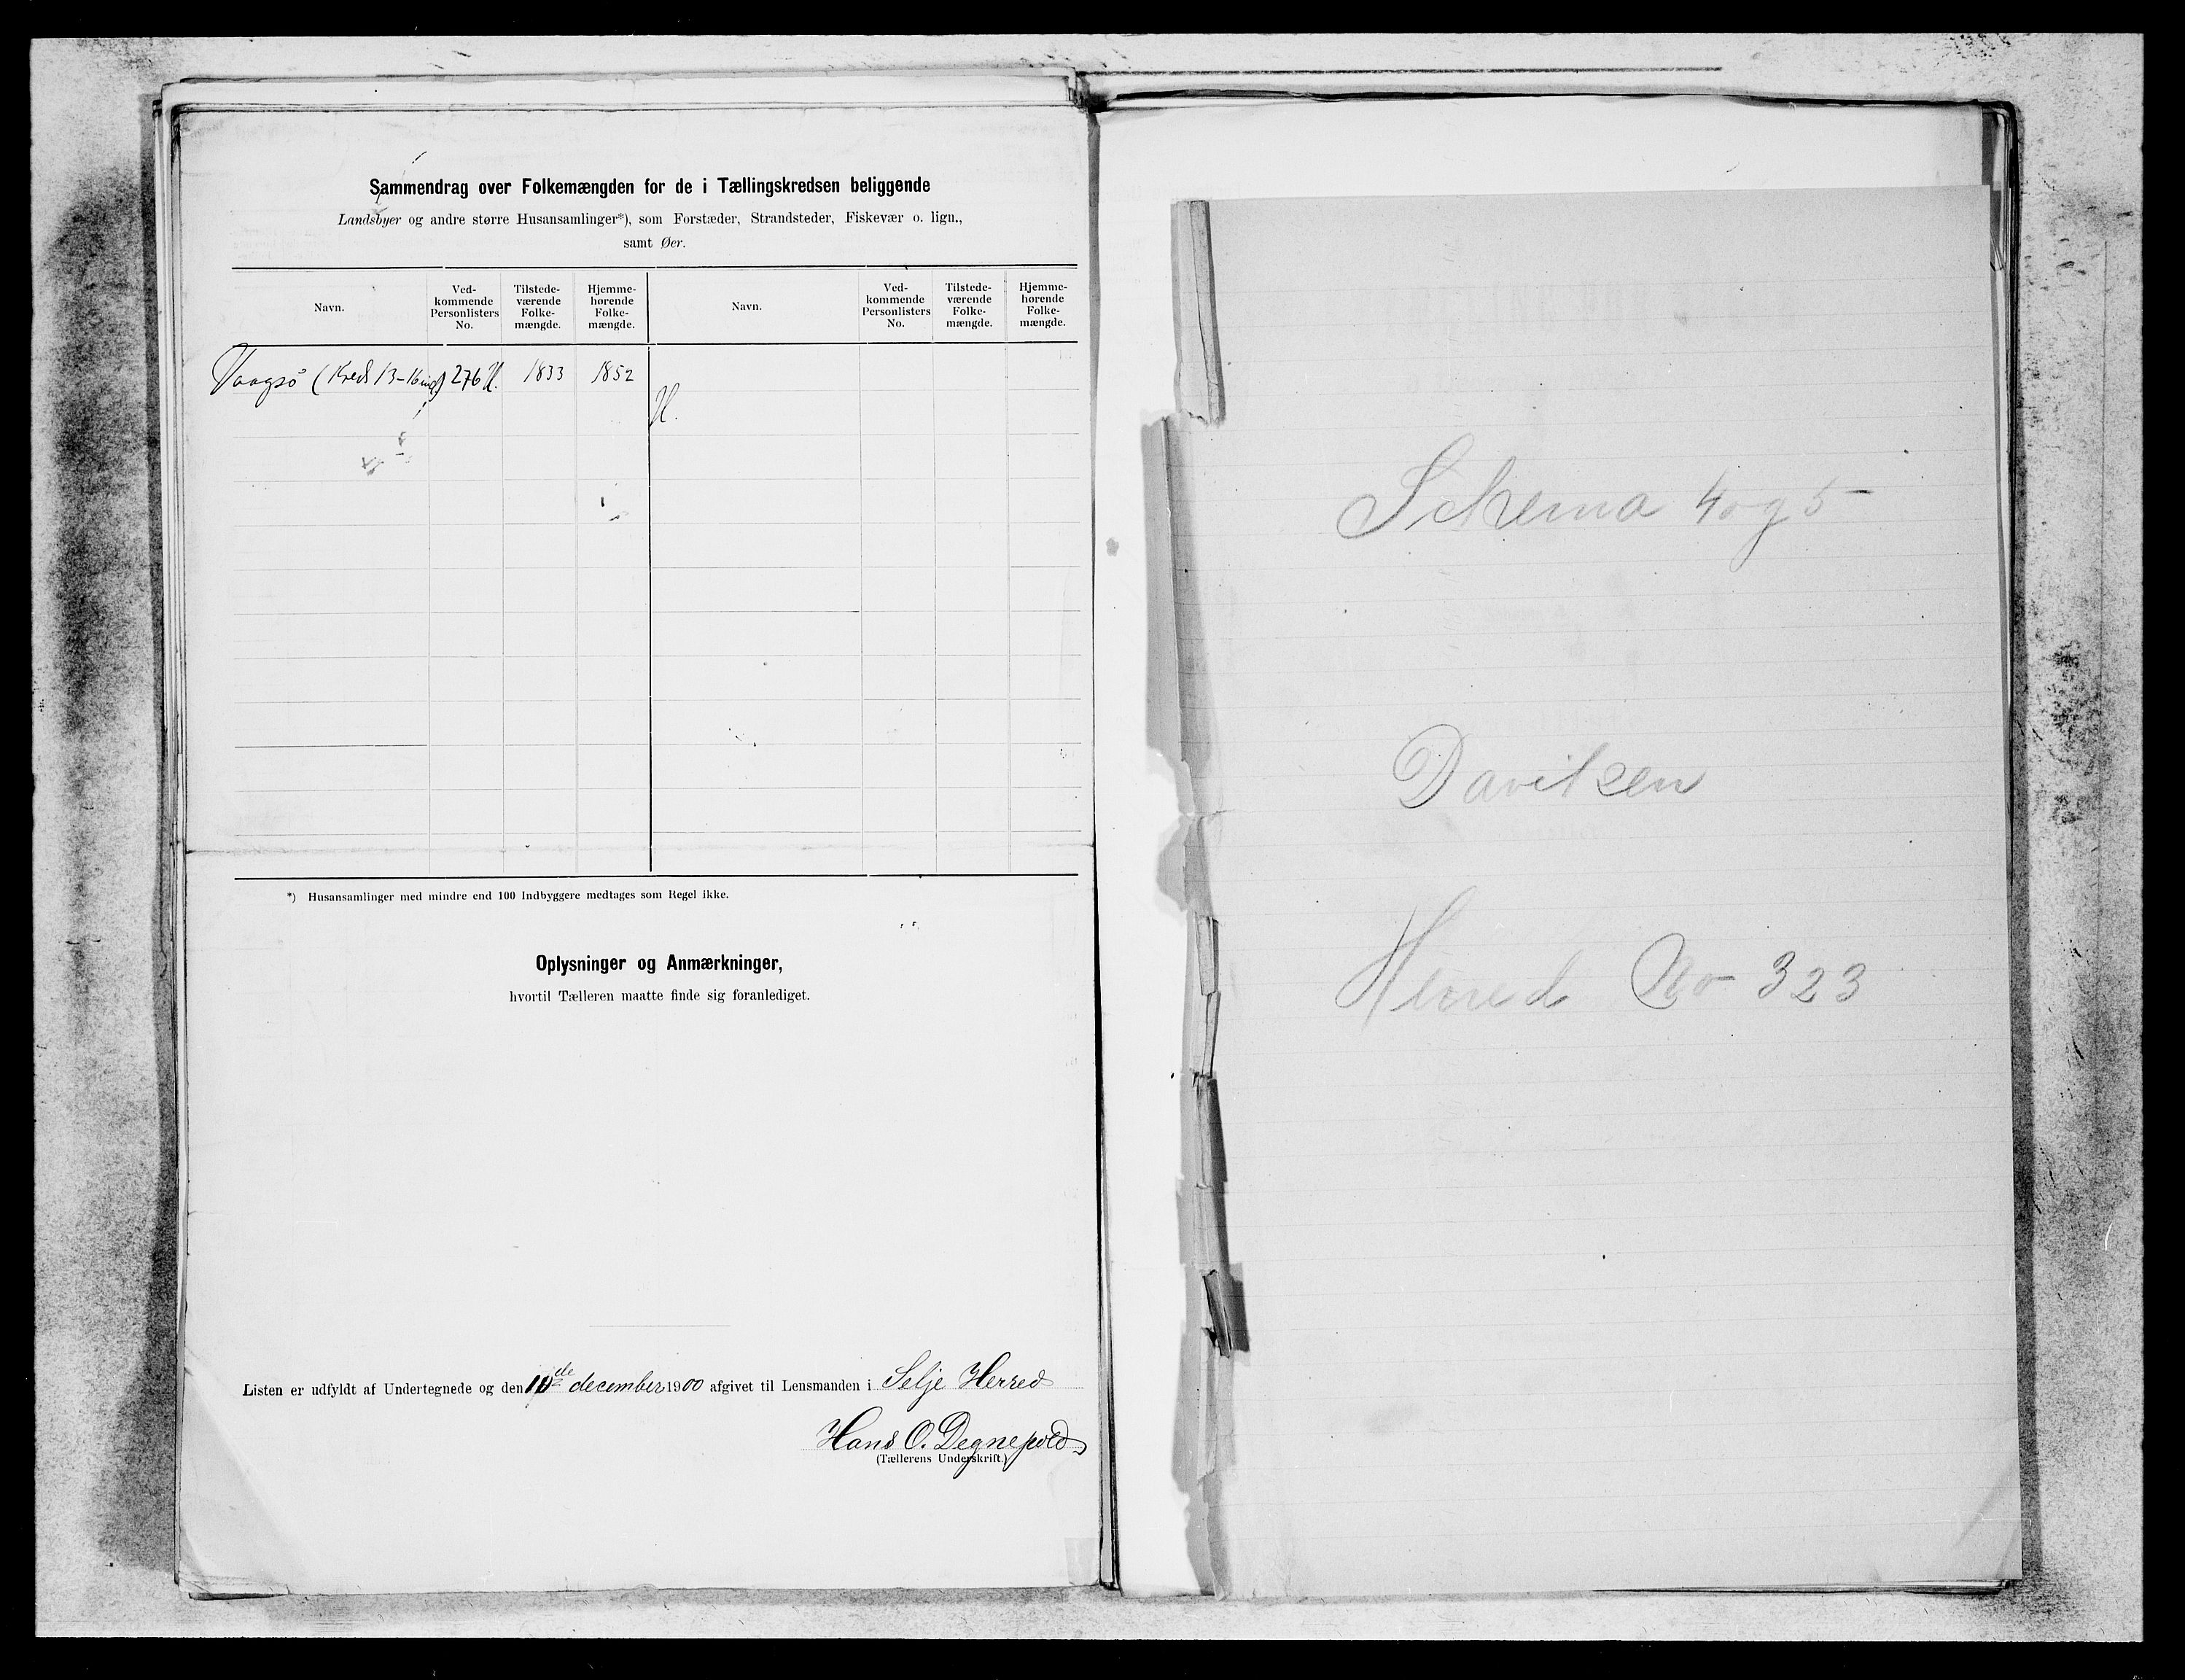 Sammendrag over Folkemængden for de i Tællingskredsen beliggende
Landsbyer og andre større Husansamlinger*), som Forstæder, Strandsteder, Fiskevær o. lign.,
samt Øer.
Navn.
Ved-
kommende
Personlisters
No.
Tilstede-
værende
Folke-
mængde.
Hjemme-
hørende
Folke-
mængde.
Navn.
Ved-
kommende
Personlisters
No.
Tilstede-
værende
Folke-
mængde.
Hjemme-
hørende
Folke-
mængde.
Vaagsö (Kreds 13-16 incl) 276 H. 1833 1852
H.
*) Husansamlinger med mindre end 100 Indbyggere medtages som Regel ikke.
Oplysninger og Anmærkninger,
hvortil Tælleren maatte finde sig foranlediget.
Listen er udfyldt af Undertegnede og den 10de december 1900 afgivet til Lensmanden i Selje Herred
Hans O. Degnepold
(Tællerens Underskrift.)
Schema 4 og 5
Daviken
Herred No 323